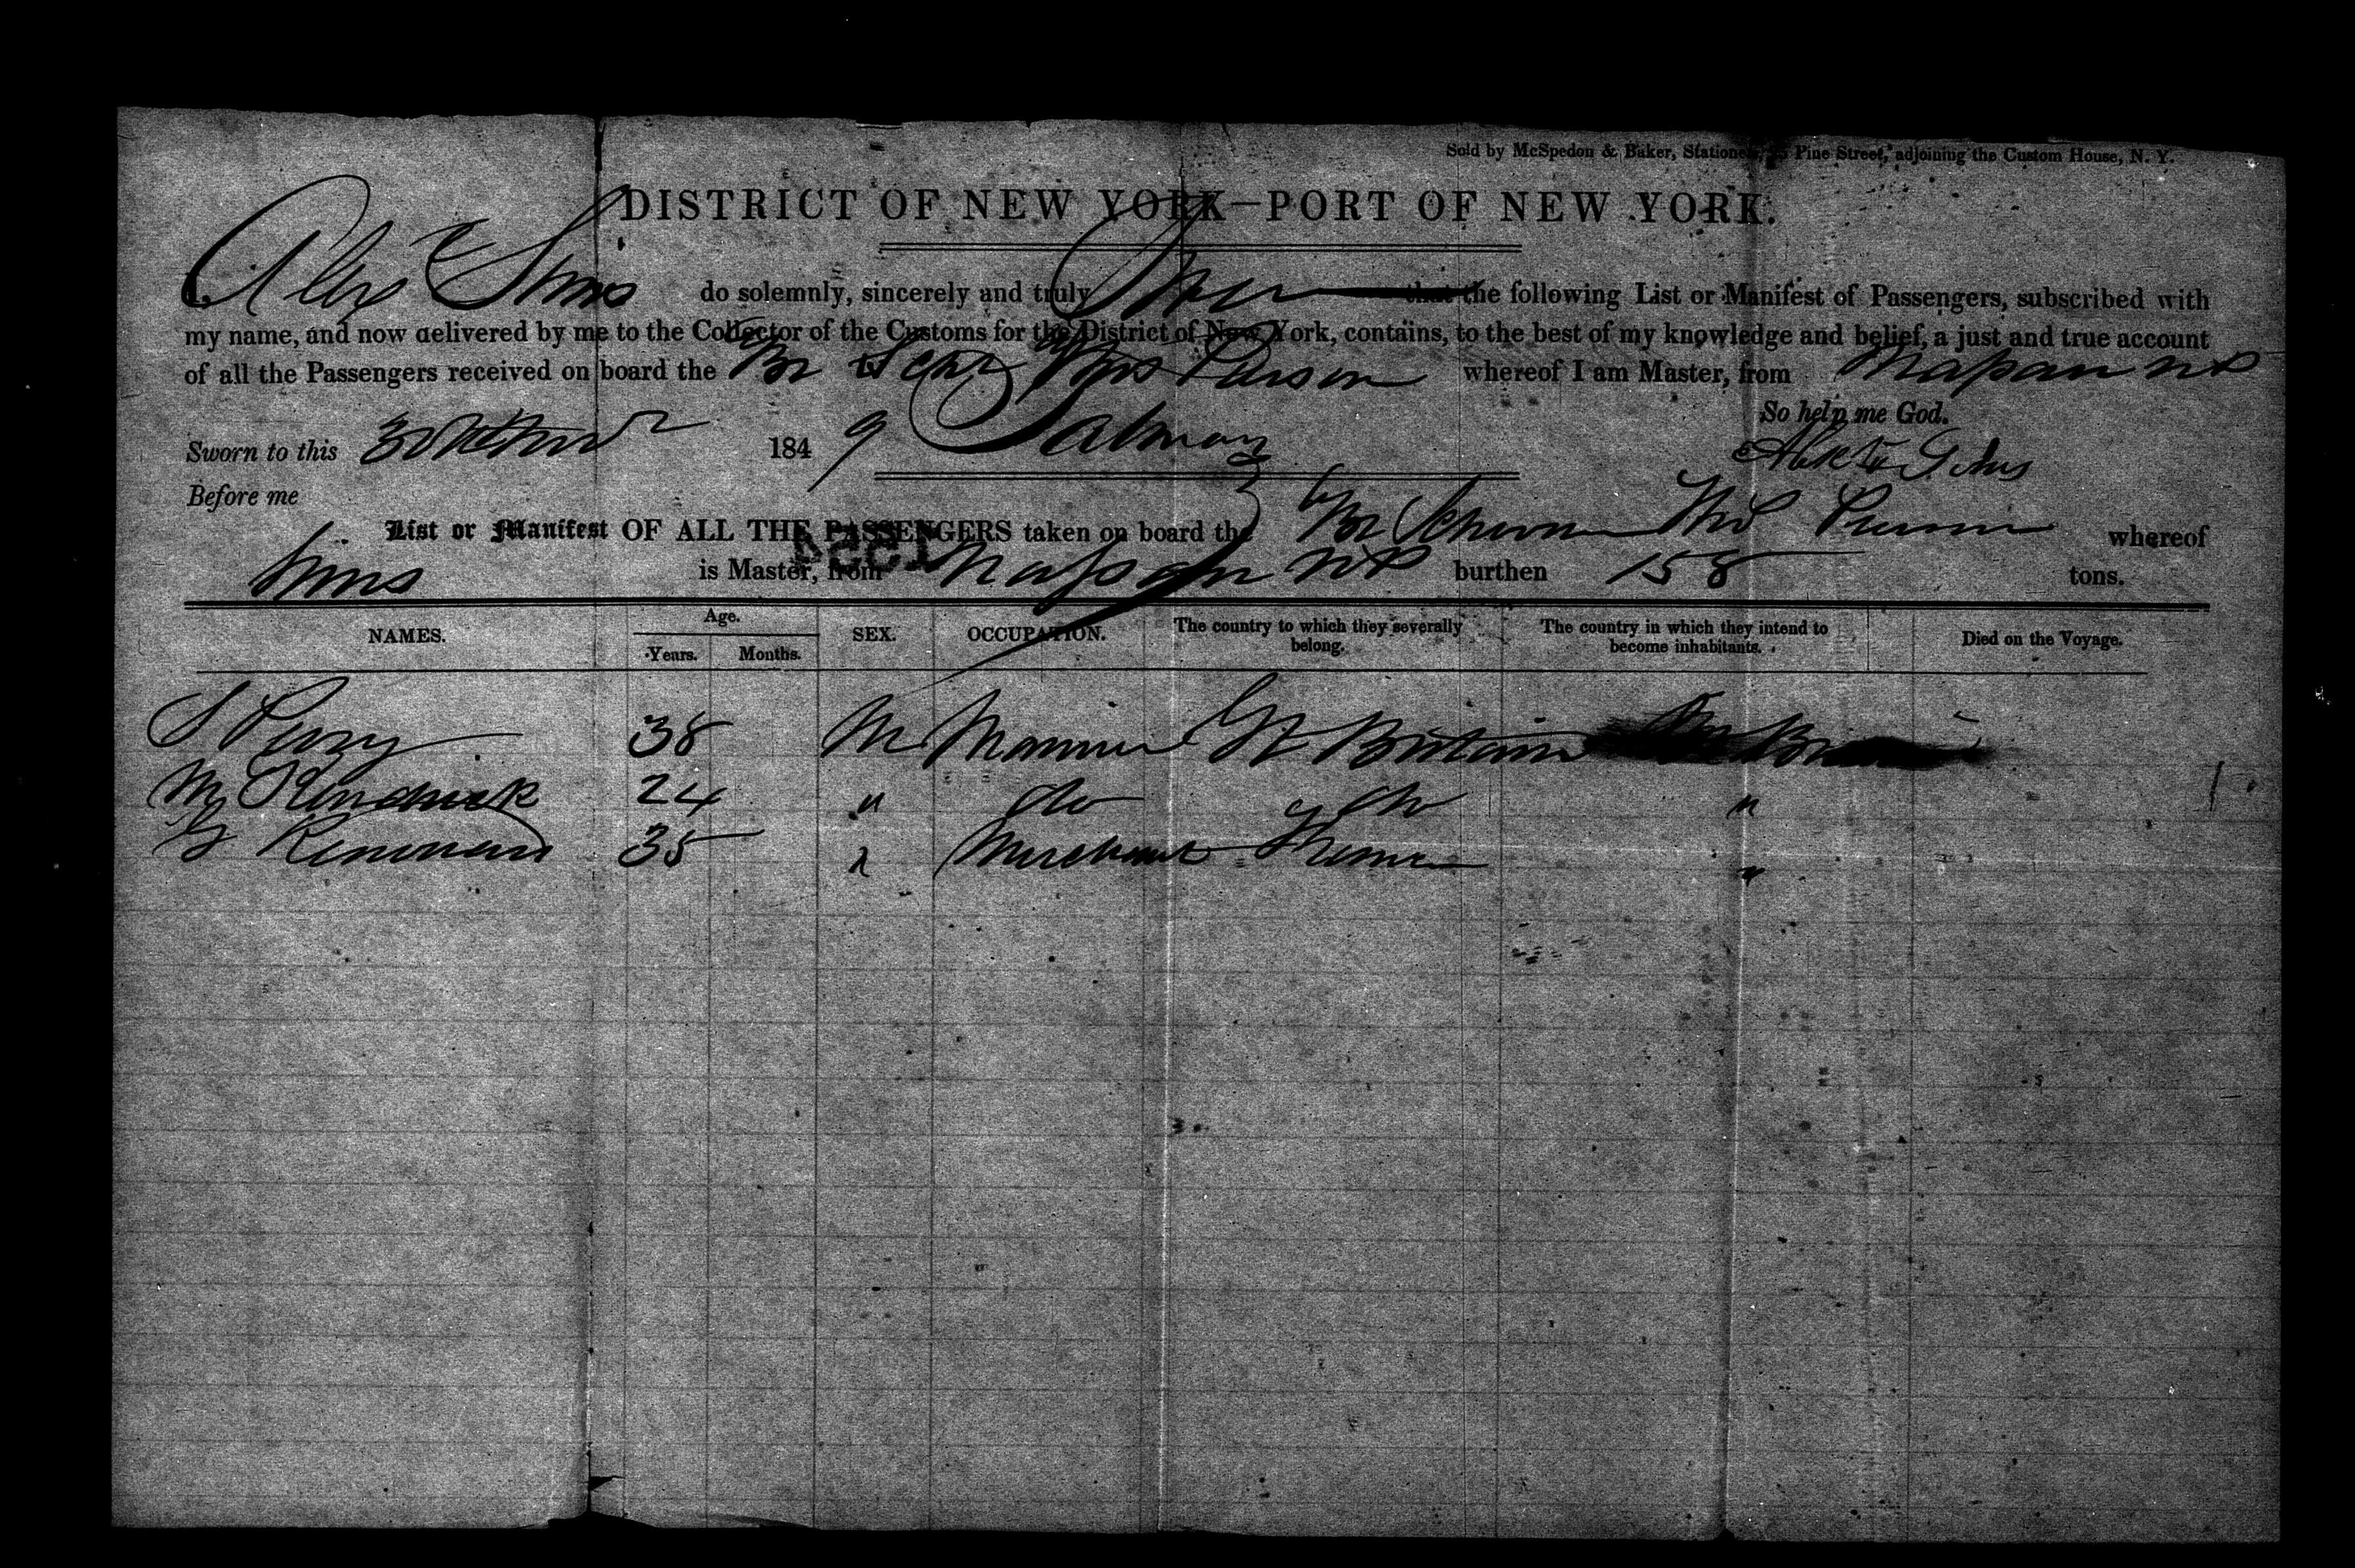 Sold by McSpedon & Baker, Stationers, Pine Street, adjoining the Custom House, N. Y.
DISTRICT OF NEW YORK—PORT OF NEW YORK.
Alexr Sims do solemnly, sincerely and truly Swear that the following List or Manifest of Passengers, subscribed with
my name, and now delivered by me to the Collector of the Customs for the District of New York, contains, to the best of my knowledge and belief, a just and true account
of all the Passengers received on board the Br Schr whereof I am Master, from Nassau NP
So help me God.
Sworn to this 30 1849
Before me
List or Manifest OF ALL THE PASSENGERS taken on board the Br whereof
Sims is Master, from Nassau NP burthen 158 tons.
NAMES. Age. Years. Months. SEX. OCCUPATION. The country to which they severally belong. The country in which they intend to become inhabitants. Died on the Voyage.
S 38 M Mariner Gt Britain
M Kendrick 24 " do do "
35 " Merchant "